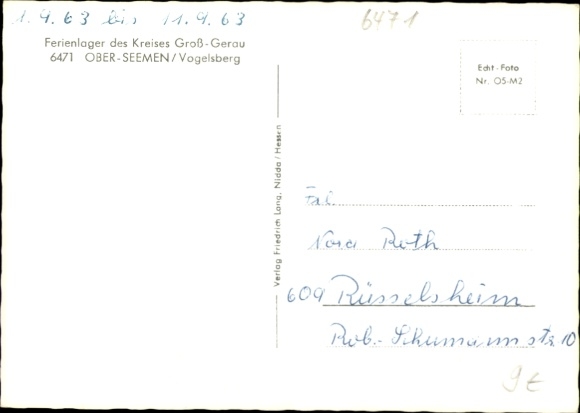 1.9.63 bis 11.9.63
6471
Ferienlager des Kreises Groß-Gerau
6471 OBER-SEEMEN/Vogelsberg
Echt-Foto
Nr. OS-M2
Verlag Friedrich Lang, Nidda/Hessen
Frl.
Nora Roth
609 Rüsselsheim
Rob.-Schumannstr. 10
9€